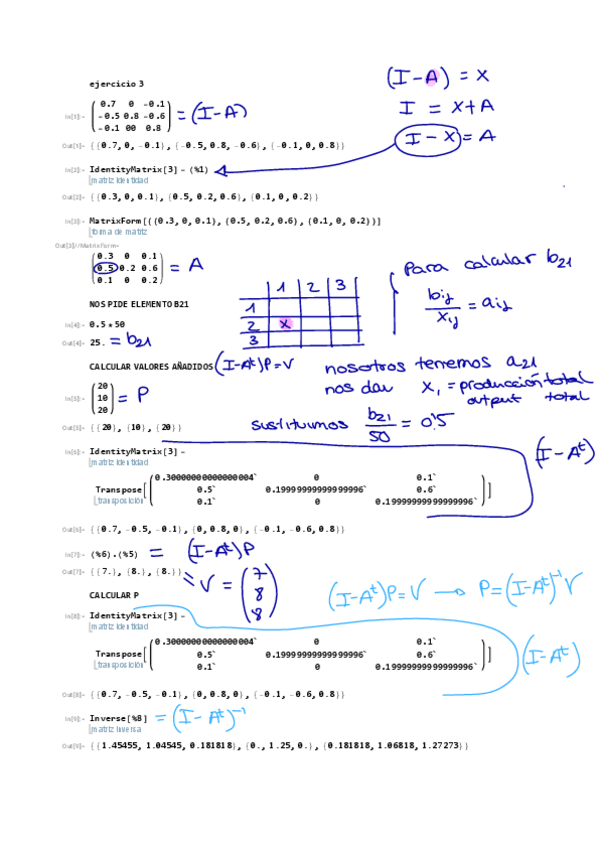 ejercicio 3
(I-A) = X
I = X+A
I - X = A
In[1]:= ( 0.7 0 -0.1
-0.5 0.8 -0.6
-0.1 00 0.8 ) = (I-A)
Out[1]= {{0.7, 0, -0.1}, {-0.5, 0.8, -0.6}, {-0.1, 0, 0.8}}
In[2]:= IdentityMatrix[3] - (%1)
matriz identidad
Out[2]= {{0.3, 0, 0.1}, {0.5, 0.2, 0.6}, {0.1, 0, 0.2}}
In[3]:= MatrixForm[{{0.3, 0, 0.1}, {0.5, 0.2, 0.6}, {0.1, 0, 0.2}}]
forma de matriz
Out[3]//MatrixForm=
( 0.3 0 0.1
0.5 0.2 0.6
0.1 0 0.2 ) = A
Para calcular b21
bij / xij = aij
1 2 3
1
2 X
3
NOS PIDE ELEMENTO B21
In[4]:= 0.5*50
Out[4]= 25. = b21
CALCULAR VALORES AÑADIDOS (I-At)P=V
nosotros tenemos a21
nos dan X1 = producción total
output total
sustituimos b21 / 50 = 0'5
In[5]:= ( 20
10
20 ) = P
Out[5]= {{20}, {10}, {20}}
In[6]:= IdentityMatrix[3] -
matriz identidad
(I-At)
Transpose[( 0.30000000000000004` 0 0.1`
0.5` 0.19999999999999996` 0.6`
0.1` 0 0.19999999999999996` )]
transposición
Out[6]= {{0.7, -0.5, -0.1}, {0, 0.8, 0}, {-0.1, -0.6, 0.8}}
In[7]:= (%6).(%5) = (I-At)P
Out[7]= {{7.}, {8.}, {8.}} = V = ( 7
8
8 )
CALCULAR P
(I-At)P=V → P=(I-At)-1 V
In[8]:= IdentityMatrix[3] -
matriz identidad
Transpose[( 0.30000000000000004` 0 0.1`
0.5` 0.19999999999999996` 0.6`
0.1` 0 0.19999999999999996` )]
transposición
(I-At)
Out[8]= {{0.7, -0.5, -0.1}, {0, 0.8, 0}, {-0.1, -0.6, 0.8}}
In[9]:= Inverse[%8] = (I-At)-1
matriz inversa
Out[9]= {{1.45455, 1.04545, 0.181818}, {0., 1.25, 0.}, {0.181818, 1.06818, 1.27273}}